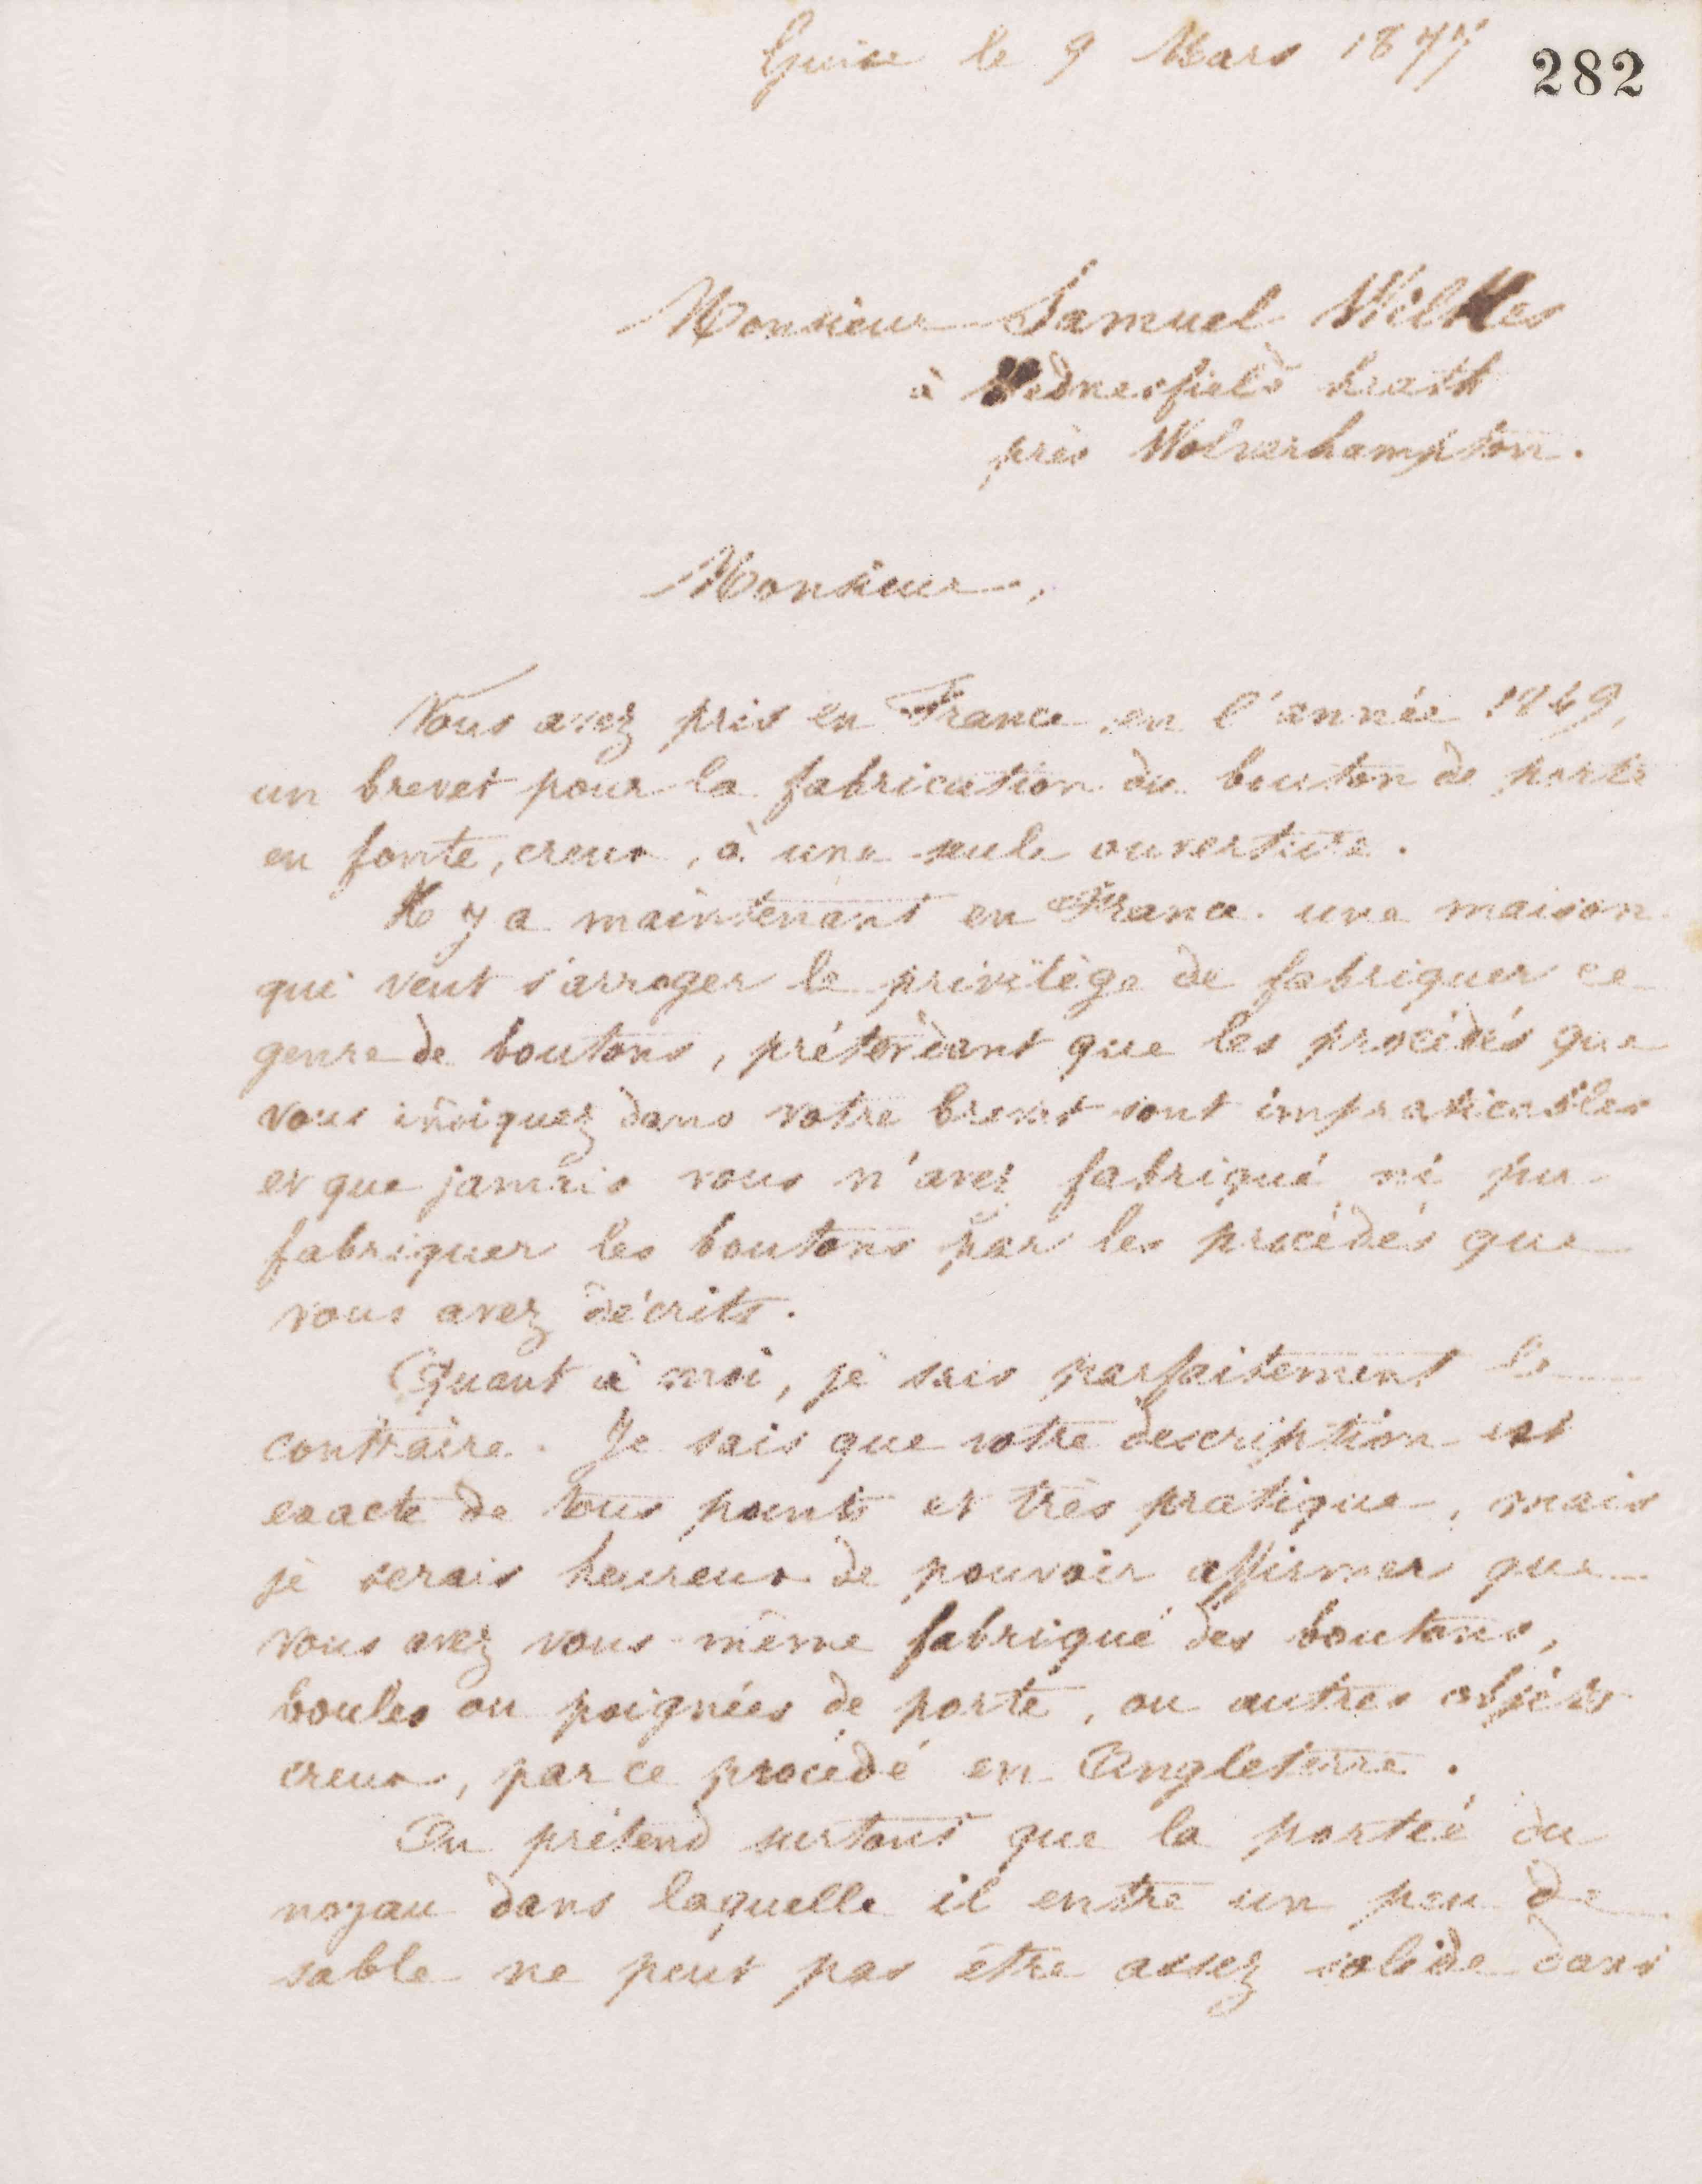 Guise le 9 Mars 1877
282
Monsieur Samuel Wilkes
à Wednesfield heath
près Wolverhampton.
Monsieur,
Vous avez pris en France, en l'année 1869,
un brevet pour la fabrication du bouton de porte
en fonte, creux, à une seule ouverture.
Il y a maintenant en France une maison
qui veut s'arroger le privilège de fabriquer ce
genre de boutons, prétendant que les procédés que
vous indiquez dans votre brevet sont impraticables
et que jamais vous n'avez fabriqué ni pu
fabriquer les boutons par les procédés que
vous avez décrits.
Quant à moi, je sais parfaitement le
contraire. Je sais que votre description est
exacte de tous points et très pratique, mais
je serais heureux de pouvoir affirmer que
vous avez vous-même fabriqué des boutons,
boules ou poignées de porte, ou autres objets
creux, par ce procédé en Angleterre.
On prétend surtout que la portée du
noyau dans laquelle il entre un peu de
sable ne peut pas être assez solide dans